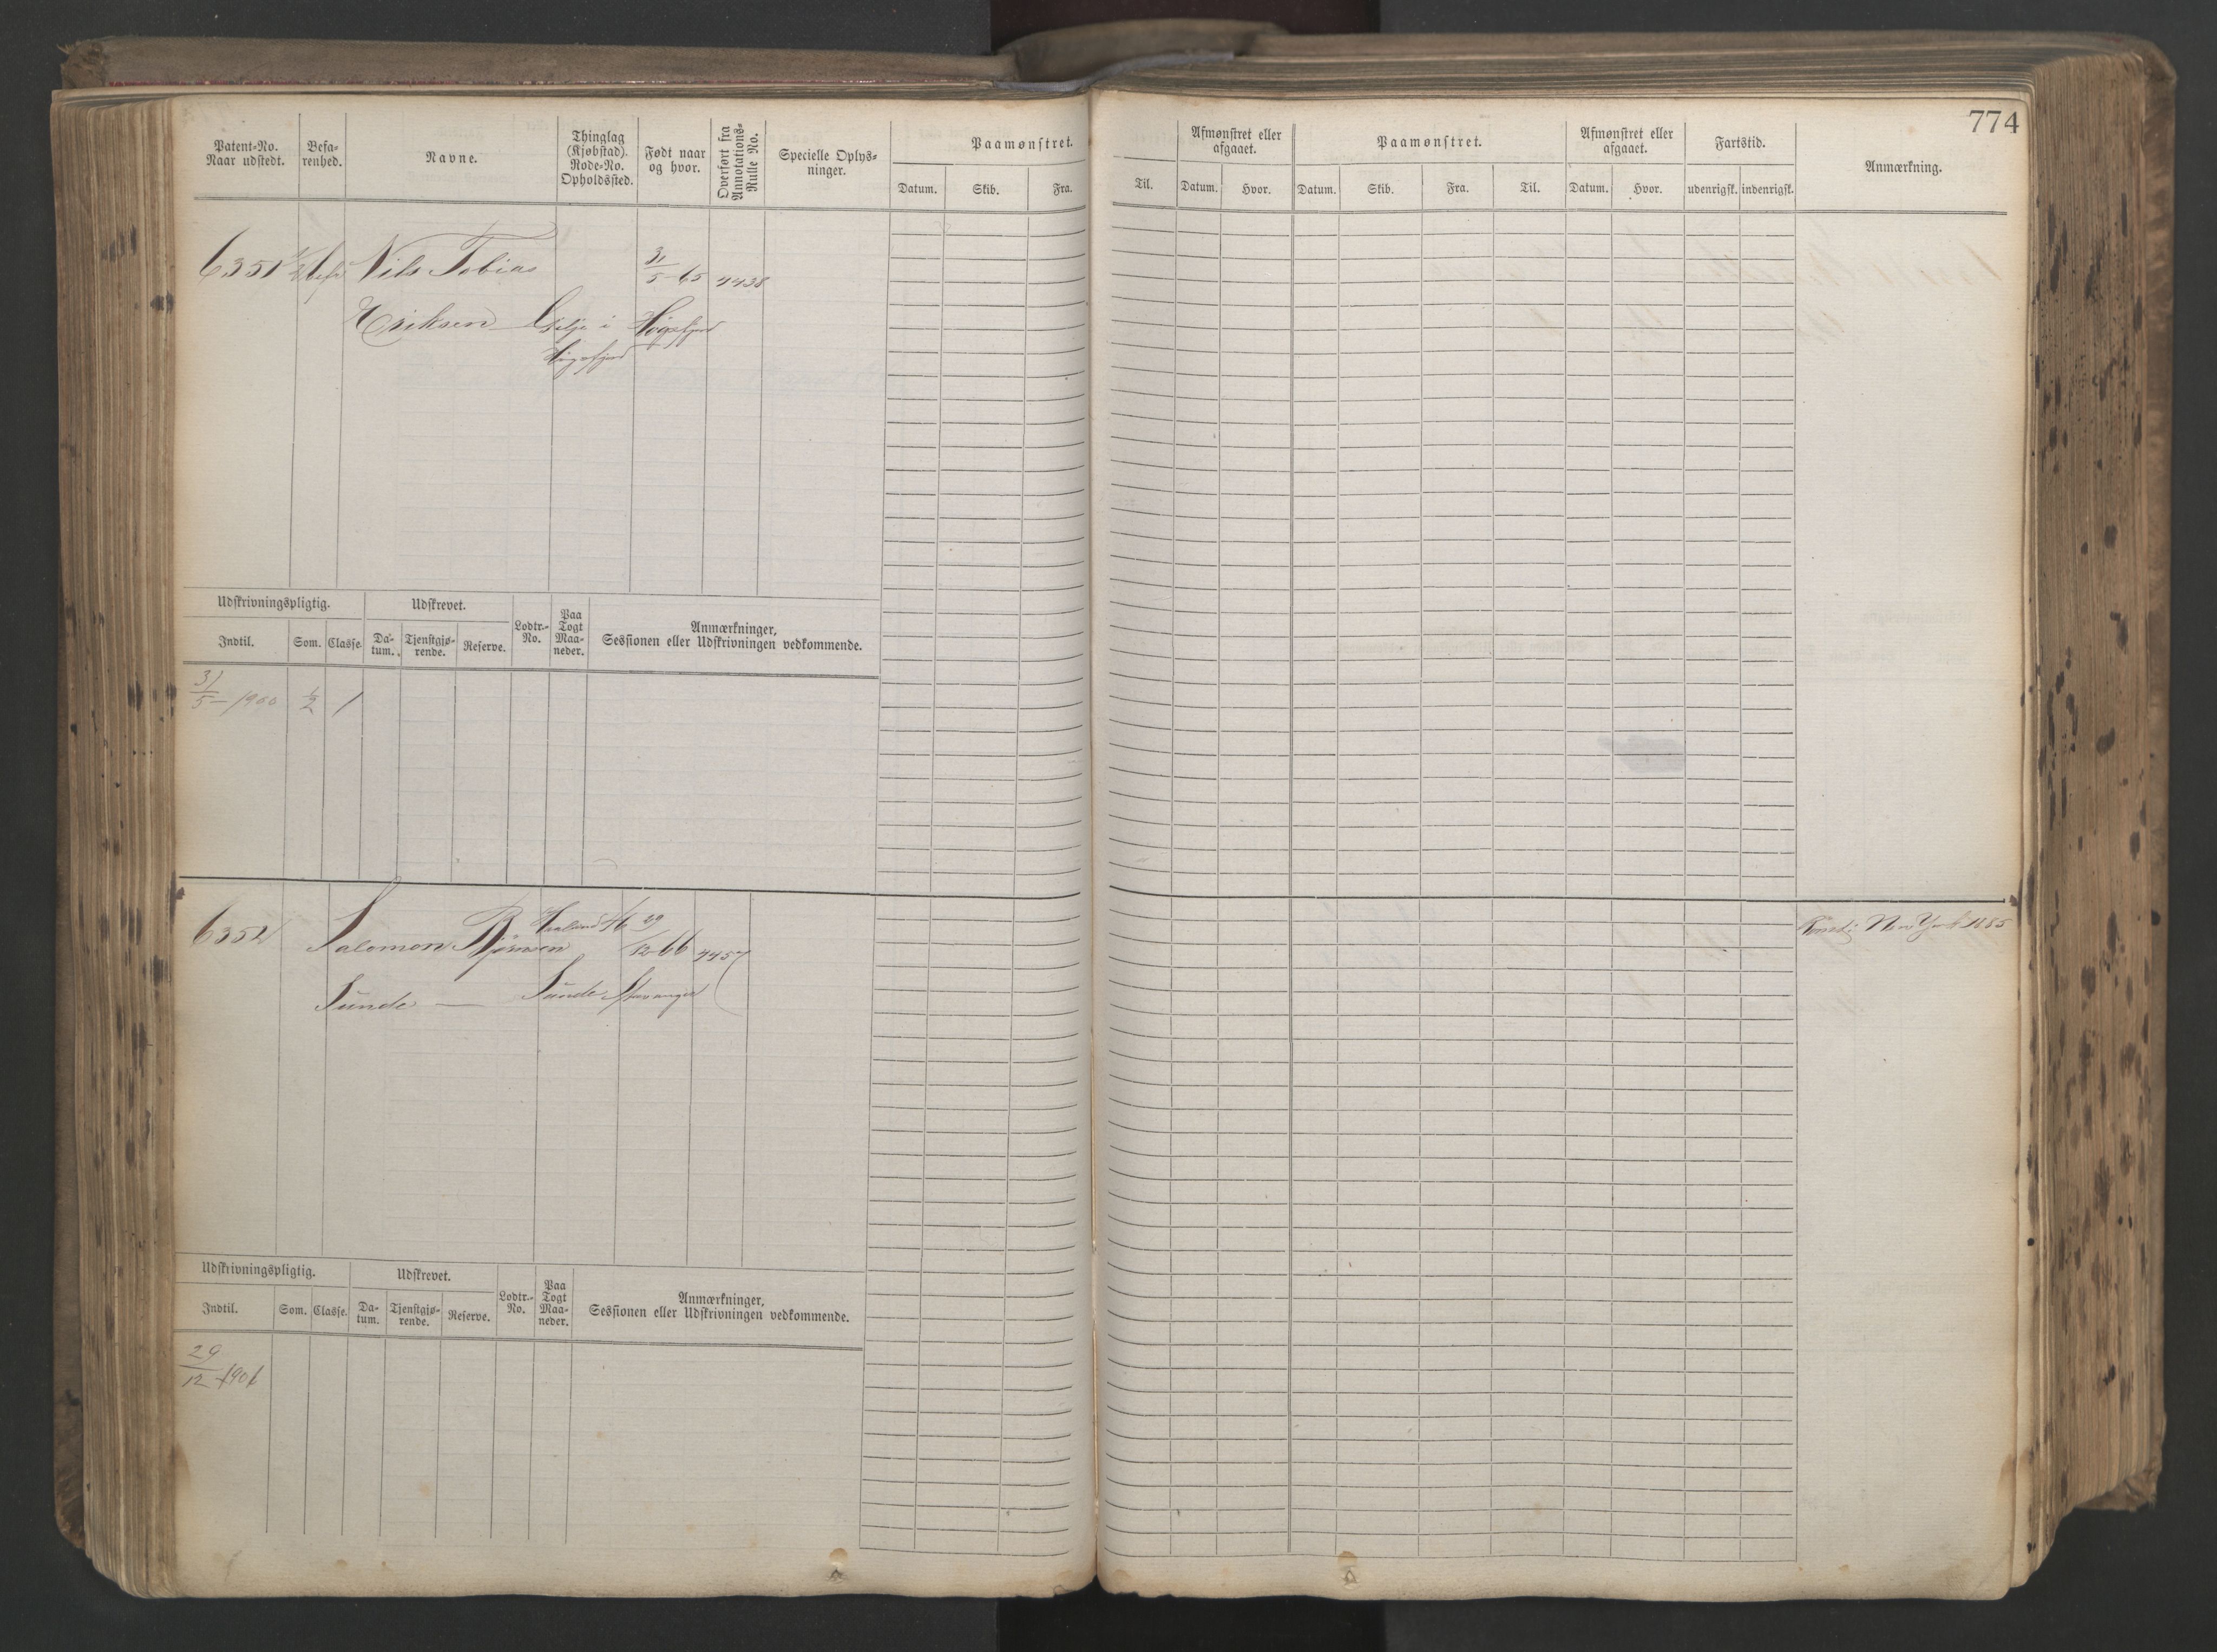 774
Patent-No. Naar udstedt.
Befa-
renhed.
Navne.
Thinglag
(Kjøbstad).
Rode-No.
Opholdssted.
Født naar
og hvor.
Overført fra
Annotations-
Rulle No.
Specielle Oplys-
ninger.
Paamønstret.
Datum. Skib. Fra.
Til.
Afmønstret eller
afgaaet.
Datum. Hvor.
Paamønstret.
Datum. Skib. Fra. Til.
Afmønstret eller
afgaaet.
Datum. Hvor.
Fartstid.
udenrigsk. indenrigsk.
Anmærkning.
6351 1/2 befr Nils Tobias 31/5-65 4438
Eriksen Gilje i Høgsfjord
Høgsfjord
Udskrivningspligtig.
Indtil. Som. Classe.
Udskrevet.
Da-
tum.
Tjenstgjø-
rende.
Reserve.
Lodtr.-
No.
Paa
Togt
Maa-
neder.
Anmærkninger,
Sessionen eller Udskrivningen vedkommende.
31/5-1900 1/2 1
6352 Salomon Bjørnsen Haaland 46 29/12-66 4457
Sunde — Sunde Stavanger
New York 1885
Udskrivningspligtig.
Indtil. Som. Classe.
Udskrevet.
Da-
tum.
Tjenstgjø-
rende.
Reserve.
Lodtr.-
No.
Paa
Togt
Maa-
neder.
Anmærkninger,
Sessionen eller Udskrivningen vedkommende.
29/12-1901